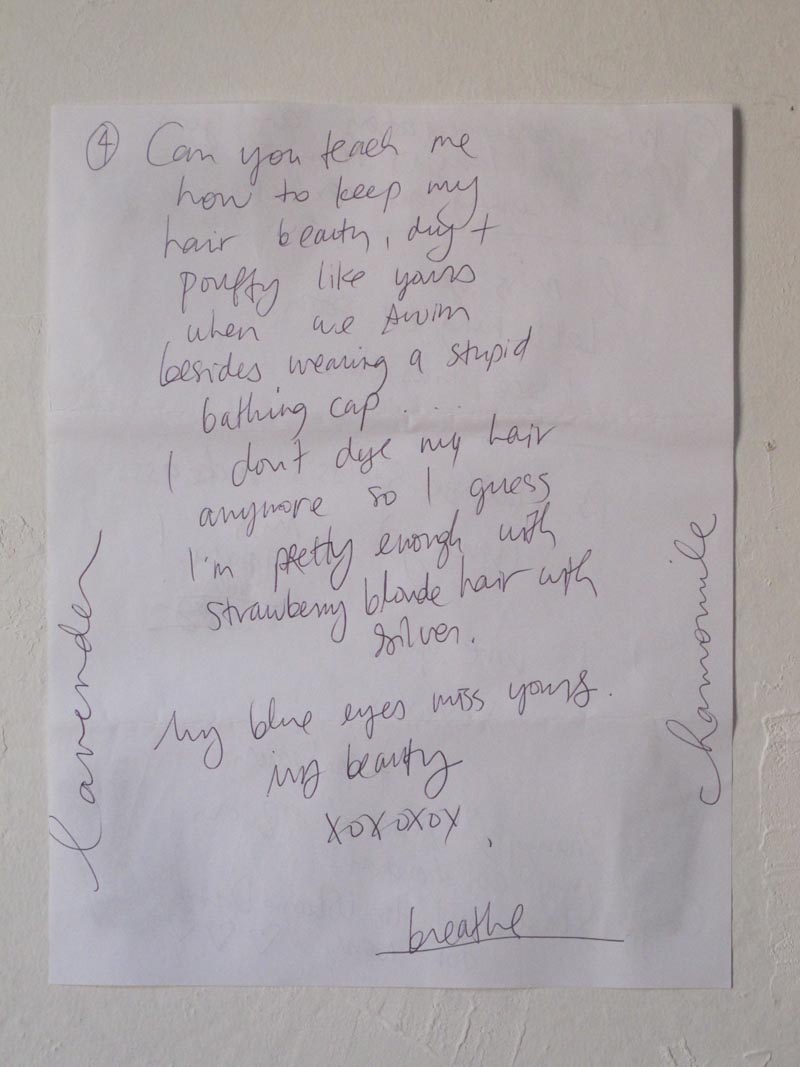 ④ Can you teach me
how to keep my
hair beauty, dry +
pouffy like yours
when we swim
besides wearing a stupid
bathing cap ....
I don't dye my hair
anymore so I guess
I'm pretty enough with
strawberry blonde hair with
silver.
My blue eyes miss yours.
my beauty
xoxoxox
breathe
lavender
chamomile